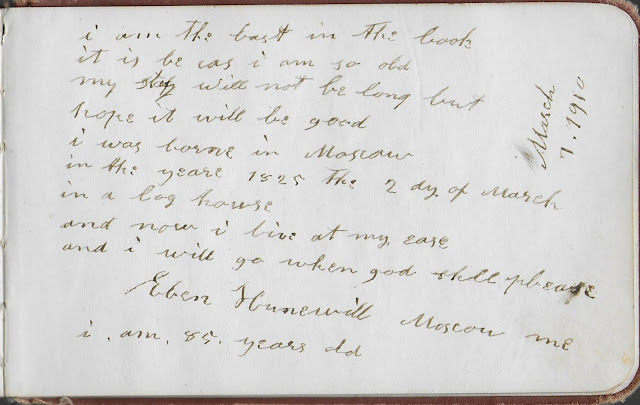 i am the last in the book
it is be cas i am so old
my sty will not be long but
hope it will be good
i was borne in Moscow
in the yeare 1825 the 2 dy of March
in a log howse
and now i live at my ease
and i will go when god shll please
Eben Hunewill Moscow me
i . am . 85 . years old
March
7. 1910